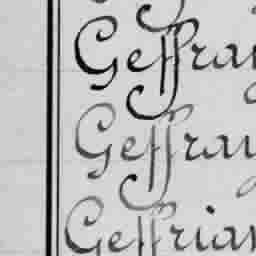 Geffray
Geffray
Geffrian